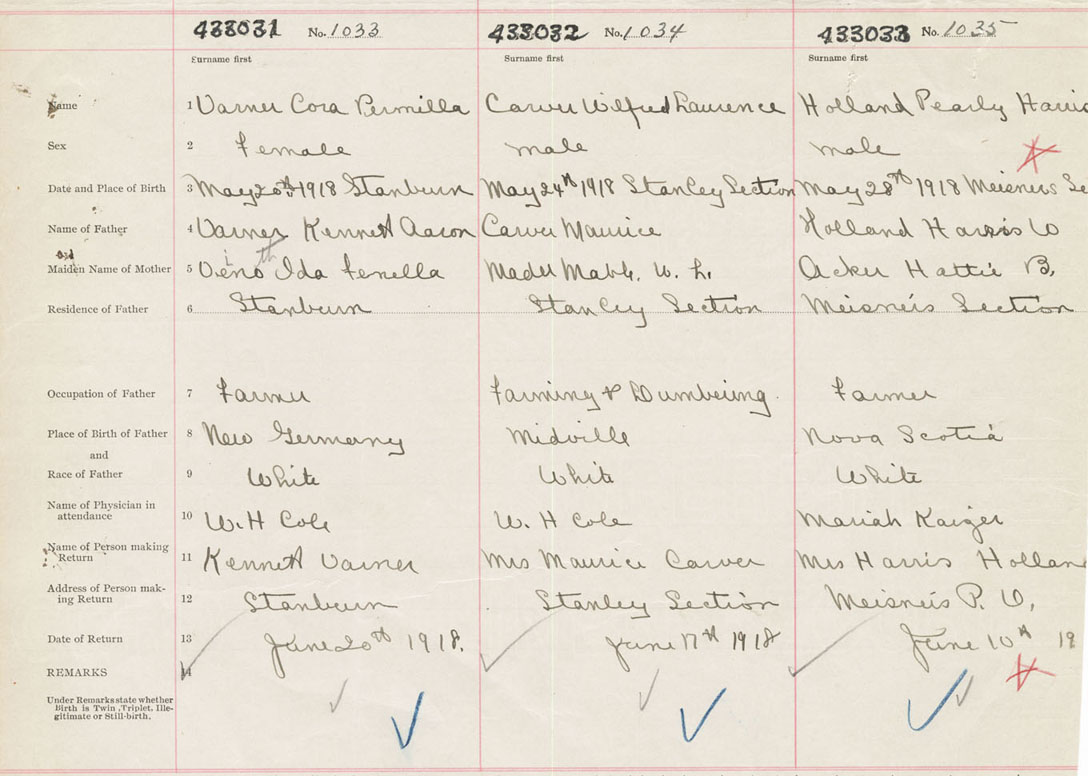 433031 No. 1033 433032 No. 1034 433033 No. 1035
Surname first Surname first Surname first
Name 1 Varner Cora Permilla Carver Wilfred Laurence Holland Pearly Harris
Sex 2 Female male male
Date and Place of Birth 3 May 20th 1918 Stanburn May 24th 1918 Stanley Section May 28th 1918 Meisners Se
Name of Father 4 Varner Kenneth Aaron Carver Maurice Holland Harris W
and
Maiden Name of Mother 5 Ida Fenella Mader Mable. W. L. Acker Hattie B.
Residence of Father 6 Stanburn Stanley Section Meisneis Section
Occupation of Father 7 Farmer Farming & Lumbering. Farmer
Place of Birth of Father 8 New Germany Midville Nova Scotia
and
Race of Father 9 White White White
Name of Physician in
attendance 10 W. H Cole W. H Cole Mariah Kaizer
Name of Person making
Return 11 Kenneth Varner Mrs Maurice Carver Mrs Harris Hollan
Address of Person mak-
ing Return 12 Stanburn Stanley Section Meisneis P. O.
Date of Return 13 June 20th 1918. June 17th 1918 June 10th 19
REMARKS 14
Under Remarks state whether
Birth is Twin, Triplet, Ille-
gitimate or Still-birth.